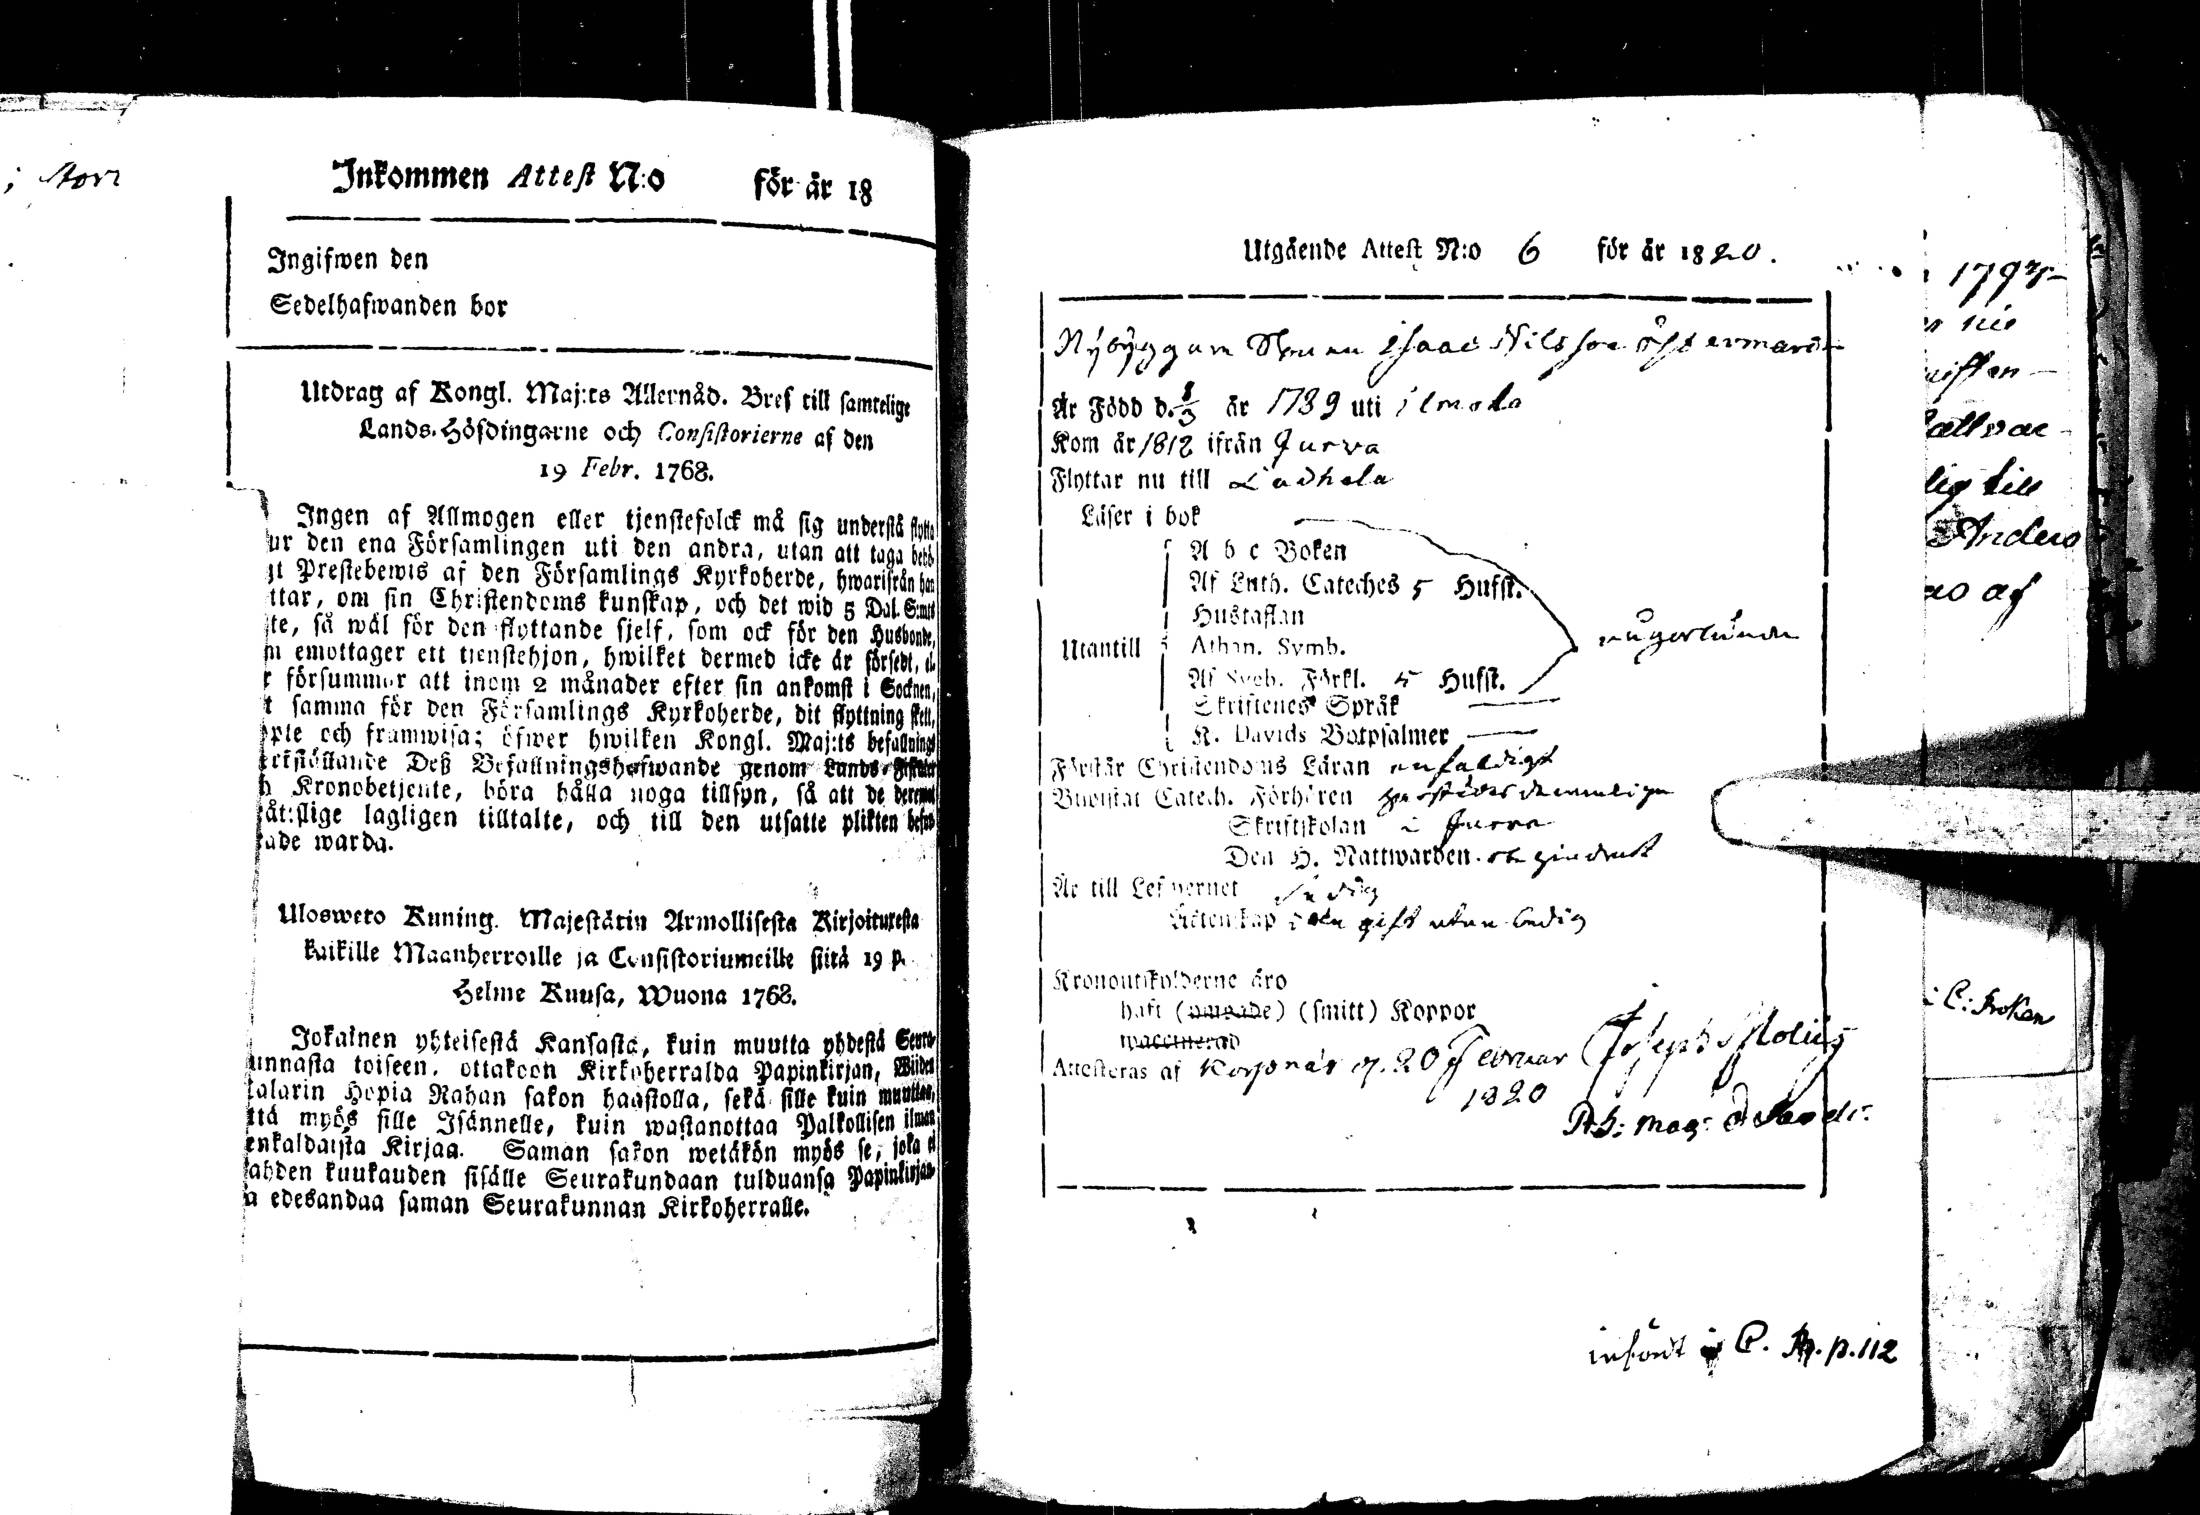 Inkommen Attest N:o för år 18
Ingifwen den
Sedelhafwanden bor
Utdrag af Kongl. Maj:ts Allernåd. Bref till samtelige
Lands-Höfdingarne och Consistorierne af den
19 Febr. 1768.
Ingen af Allmogen eller tjenstefolck må sig understå flytta
ur den ena Församlingen uti den andra, utan att taga behö-
gt Prestebewis af den Församlings Kyrkoherde, hwarifrån han
ttar, om sin Christendoms kunskap, och det wid 5 Dal. S:mts
te, så wäl för den flyttande sjelf, som ock för den Husbonde,
m emottager ett tienstehjon, hwilket dermed icke är försedt, el-
r försummar att inom 2 månader efter sin ankomst i Socknen,
t samma för den Församlings Kyrkoherde, dit flyttning skett,
pte och framwisa; öfwer hwilken Kongl. Maj:ts befallnings
erkställande Deß Befallningshafwande genom Lands-Fiskaler
h Kronobetjente, böra hålla noga tillsyn, så att de deremot
åt:slige lagligen tilltalte, och till den utsatte plikten befor-
rade warda.
Uloswero Kuning. Majestätin Armollisesta Kirjoituxesta
kaikille Maanherroille ja Consistoriumeille siitä 19 p.
Helme Kuusa, Wuona 1768.
Jokainen yhteisestä Kansasta, kuin muutta yhdestä Seura-
unnasta toiseen, ottakoon Kirkoherralda Papinkirjan, Wiiden
talarin Hopia Rahan sakon haastolla, sekä sille kuin muuttaa,
ttä myös sille Isännelle, kuin wastanottaa Palkollisen ilman
enkaldaista Kirjaa. Saman sakon wetäkön myös se, joka ei
ahden kuukauden sisälle Seurakundaan tulduansa Papinkirjan-
a edesandaa saman Seurakunnan Kirkoherralle.
Utgående Attest N:o 6 för år 1820.
Nybyggare Isaac Nilsson
Är Född d. 1/3 år 1789 uti ilmola
Kom år 1812 ifrån Jurva
Flyttar nu till
Läser i bok
A b c Boken
Af Luth. Cateches 5 Hufst.
Hustaflan
Utantill Athan. Symb.
Af Sveb. Förkl. 5 Hufst.
Skriftenes Språk
K. Davids Botpsalmer
Förstår Christendoms Läran enfaldigt
Bivistat Catech. Förhören
Skriftskolan i Jurva
Den H. Nattwarden
Är till Lefwernet
Ächtenskap gift utan ledig
Kronoutskylderne äro
haft (ympade) (smitt) Koppor
waccinerad
Attesteras af Korsnäs d. 20 Februar
1820
infördt i C. B. p. 112
1793
nie
lig till
Anders
as af
i C: Boken